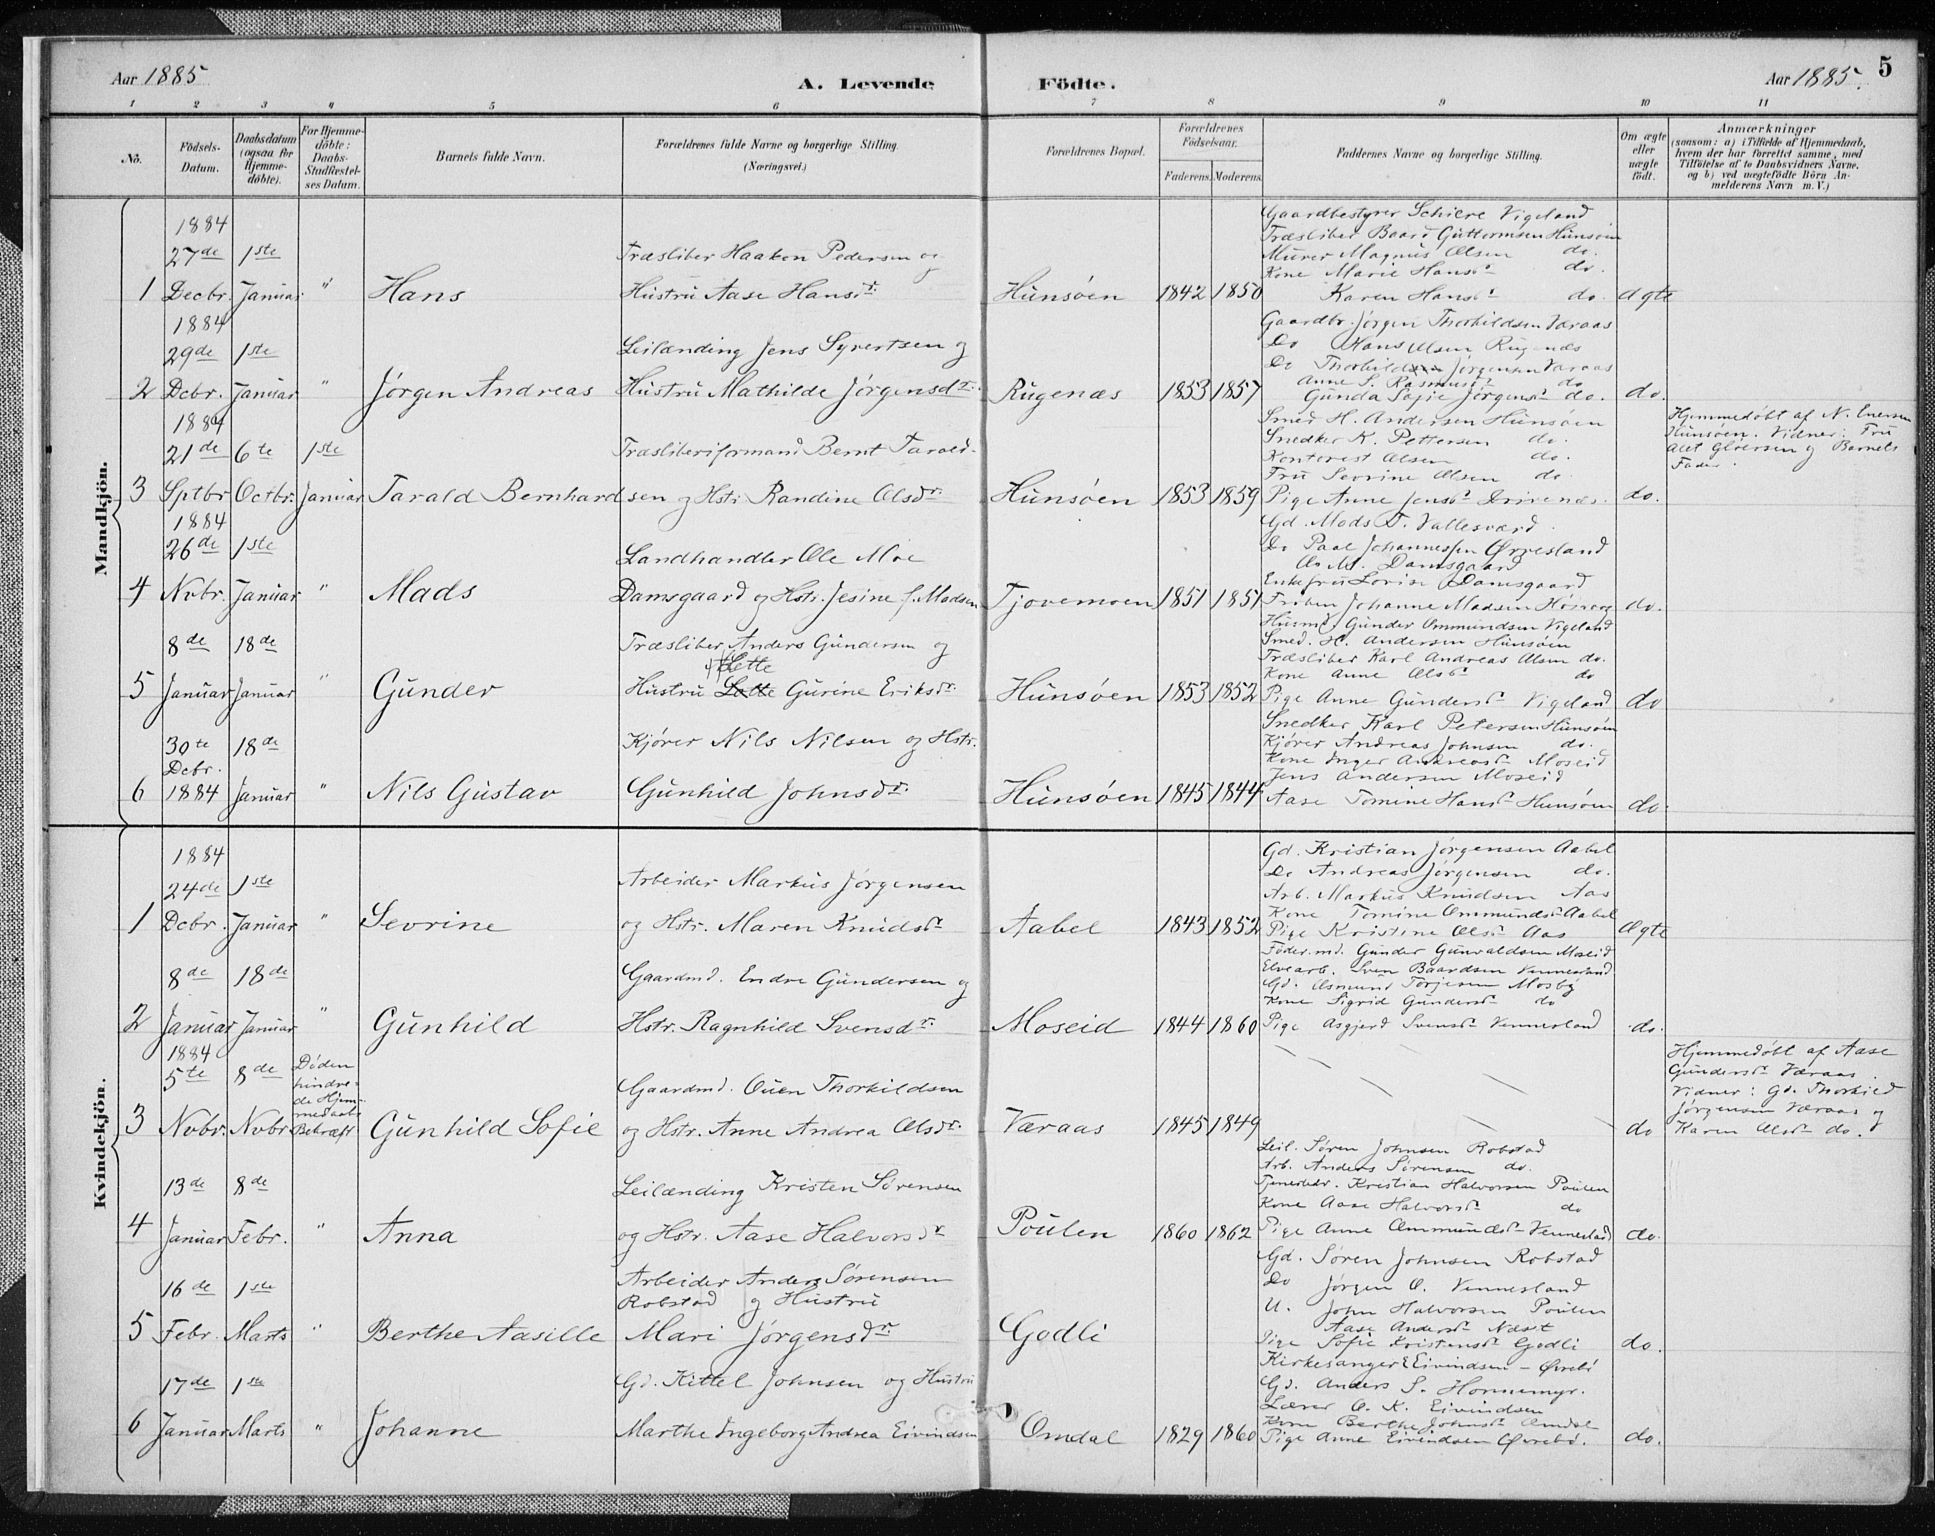 Aar 1885
A. Levende Födte.
Aar 1885.
5
1 2 3 4 5 6 7 8 9 10 11
No.
Födsels-Datum.
Daabsdatum (ogsaa for Hjemme-döbte).
For Hjemme-döbte: Daabs-Stadfæstel-ses Datum.
Barnets fulde Navn.
Forældrenes fulde Navne og borgerlige Stilling. (Næringsvei.)
Forældrenes Bopæl.
Forældrenes Födselsaar.
Faderens. Moderens.
Faddernes Navne og borgerlige Stilling.
Om ægte eller uægte födt.
Anmærkninger
(saasom: a) i Tilfælde af Hjemmedaab, hvem der har forrettet samme, med Tilföielse af to Daabsvidners Navne. og b) ved uægtefödte Börn An-melderens Navn m. V.)
Mandkjön.
1884
27de 1ste
1 Decbr. Januar " Hans
Træsliber Haakon Pedersen og
Hustru Aase Hansdr.
Hunsøen 1842 1850
Gaardbestyrer Schiere Vigeland
Træsliber Baard Guttormsen Hunsøen
Murer Magnus Olsen do.
Kone Marie Hansdr do.
Karen Hansdr do. Ægte
1884
29de 1ste
2 Dcbr. Januar " Jørgen Andreas
Leilænding Jens Syvertsen og
Hustru Mathilde Jørgensdtr.
Rugenæs 1853 1857
Gaardbr. Jørgen Thorkildsen Væraas
Do Hans Olsen Rugenæs
Do Thorkild Jørgensen Væraas
Anne S. Rasmusdr do
Gunda Sofie Jørgensdr do. do.
1884
21de 6te 1ste
3 Sptbr. Octbr. Januar Tarald Bernhard
Træsliberiformand Bernt Tarald-
sen og Hstr. Randine Olsdr.
Hunsøen 1853 1859
Smed H. Andersen Hunsøen
Snedker K. Pettersen do.
Kontorist Olsen do.
Fru Sevrine Olsen do.
Pige Anne Jensdr Drivenæs. do.
Hjemmedøbt af N. Enersen
Hunsøen. Vidner: Fru
og Barnets
Fader.
1884
26de 1ste
4 Nvbr. Januar " Mads
Landhandler Ole Moe
Damsgaard og Hstr. Jesine f. Madsen
Tjovemoen 1851 1851
Gd. Mads T. Vallesværd
Do Paal Johannessen Øvresland
O. M. Damsgaard
Enkefru Lovise Damsgaard
Frøken Johanne Madsen do.
8de 18de
5 Januar Januar " Gunder
Træsliber Anders Gundersen og
Lette
Hustru Lotte Gurine Eriksdr.
Hunsøen 1853 1852
Husmd. Gunder Ommundsen Vigeland
Smed. H. Andersen Hunsøen
Træsliber Karl Andreas Olsen do.
Kone Anne Olsdr do
Pige Anne Gundersdr Vigeland do
30te 18de
Dcbr.
6 1884 Januar " Nils Gustav
Kjører Nils Nilsen og Hstr.
Gunhild Johnsdr.
Hunsøen 1845 1844
Snedker Karl Petersen Hunsøen
Kjører Andreas Johnsen do.
Kone Inger Andreasdr Moseid
Jens Andersen Moseid
Aase Tomine Hansdr Hunsøen do.
Kvindekjön.
1884
24de 1ste
1 Dcbr. Januar " Sevrine
Arbeider Markus Jørgensen
og Hstr. Maren Knudsdr
Aabel 1843 1852
Gd. Kristian Jørgensen Aabel
Do Andreas Jørgensen do.
Arb. Markus Knudsen Aas
Kone Tomine Ommundsdr Aabel
Pige Kristine Olsdr Aas Ægte
8de 18de
2 Januar Januar " Gunhild
Gaardmd. Endre Gundersen og
Hstr. Ragnhild Svensdr.
Moseid 1844 1860
Føder.md. Gunder Gunvaldsen Moseid
Elvearb. Sven Baardsen Vennesland
Gd. Asmund Torjesen Mosby
Kone Sigrid Gundersdr do
Pige Asgjerd Svensdr Vennesland do.
1884
5te 8de Døden
hindre-
de Hjem-
medaabs
3 Nvbr. Nvbr. Bekræft Gunhild Sofie
Gaardmd. Ouen Thorkildsen
og Hstr. Anne Andrea Olsdr.
Væraas 1845 1849
do
Hjemmedøbt af Aase
Gundersdr Væraas.
Vidner: Gd. Thorkild
Jørgensen Væraas og
Karen Olsdr do.
13de 8de
4 Januar Febr. " Anna
Leilænding Kristen Sørensen
og Hstr. Aase Halvorsdr
Poulen 1860 1862
Leil. Søren Johnsen Robstad
Arb. Anders Sørensen do.
Kristian Halvorsen Poulen
Kone Aase Halvorsdr do
Pige Anne Ommundsdr Vennesland do.
16de 1ste
5 Febr. Marts " Berthe Aasille
Arbeider Anders Sørensen
Robstad og Hustru
Mari Jørgensdr.
Godli
Gd. Søren Johnsen Robstad
Do Jørgen O. Vennesland
U. John Halvorsen Poulen
Aase Andersdr Næset
Pige Sofie Kristensdr Godli do.
17de 1ste
6 Januar Marts " Johanne
Gd. Kittel Johnsen og Hustru
Marthe Ingeborg Andrea Eivindsen
Omdal 1829 1860
Kirkesanger E Eivindsen - Øvrebø
Gd. Anders S. Hommemyr.
Lærer O. K. Eivindsen
Kone Berthe Johnsdr Omdal
Pige Anne Eivindsen Øvrebø. do.